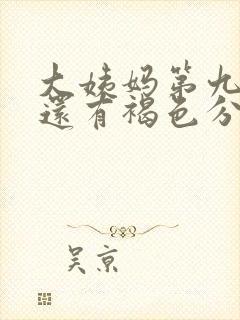 大姨妈第九
还有褐色分
吴京